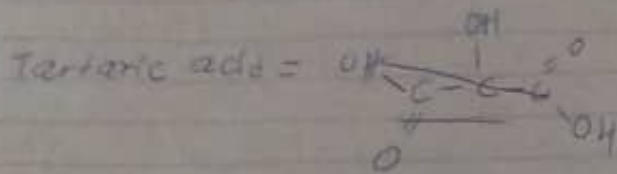 OH
Tartaric acid = OH C - C - C O
OH
O